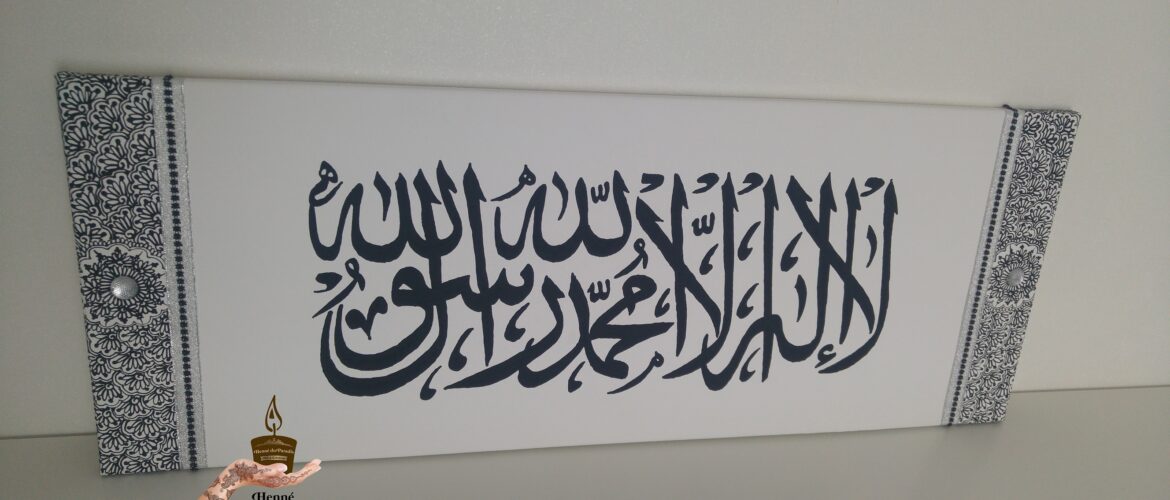 لا إله إلا الله محمد رسول الله
Henné du Paradis
Henné